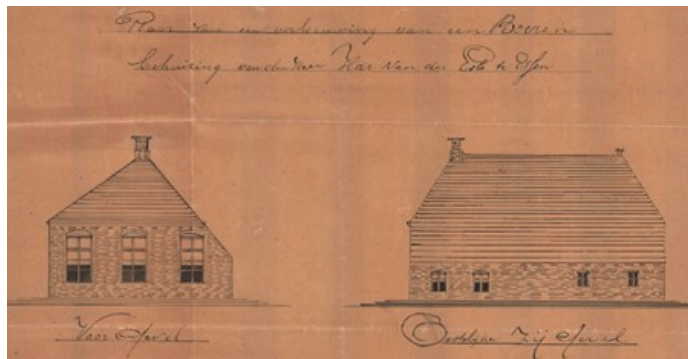 Plan van een verbouwing van een Boeren
behuizing van den Heer Har. van der Es te Essen
Voor Gevel
Oostelijke Zij Gevel